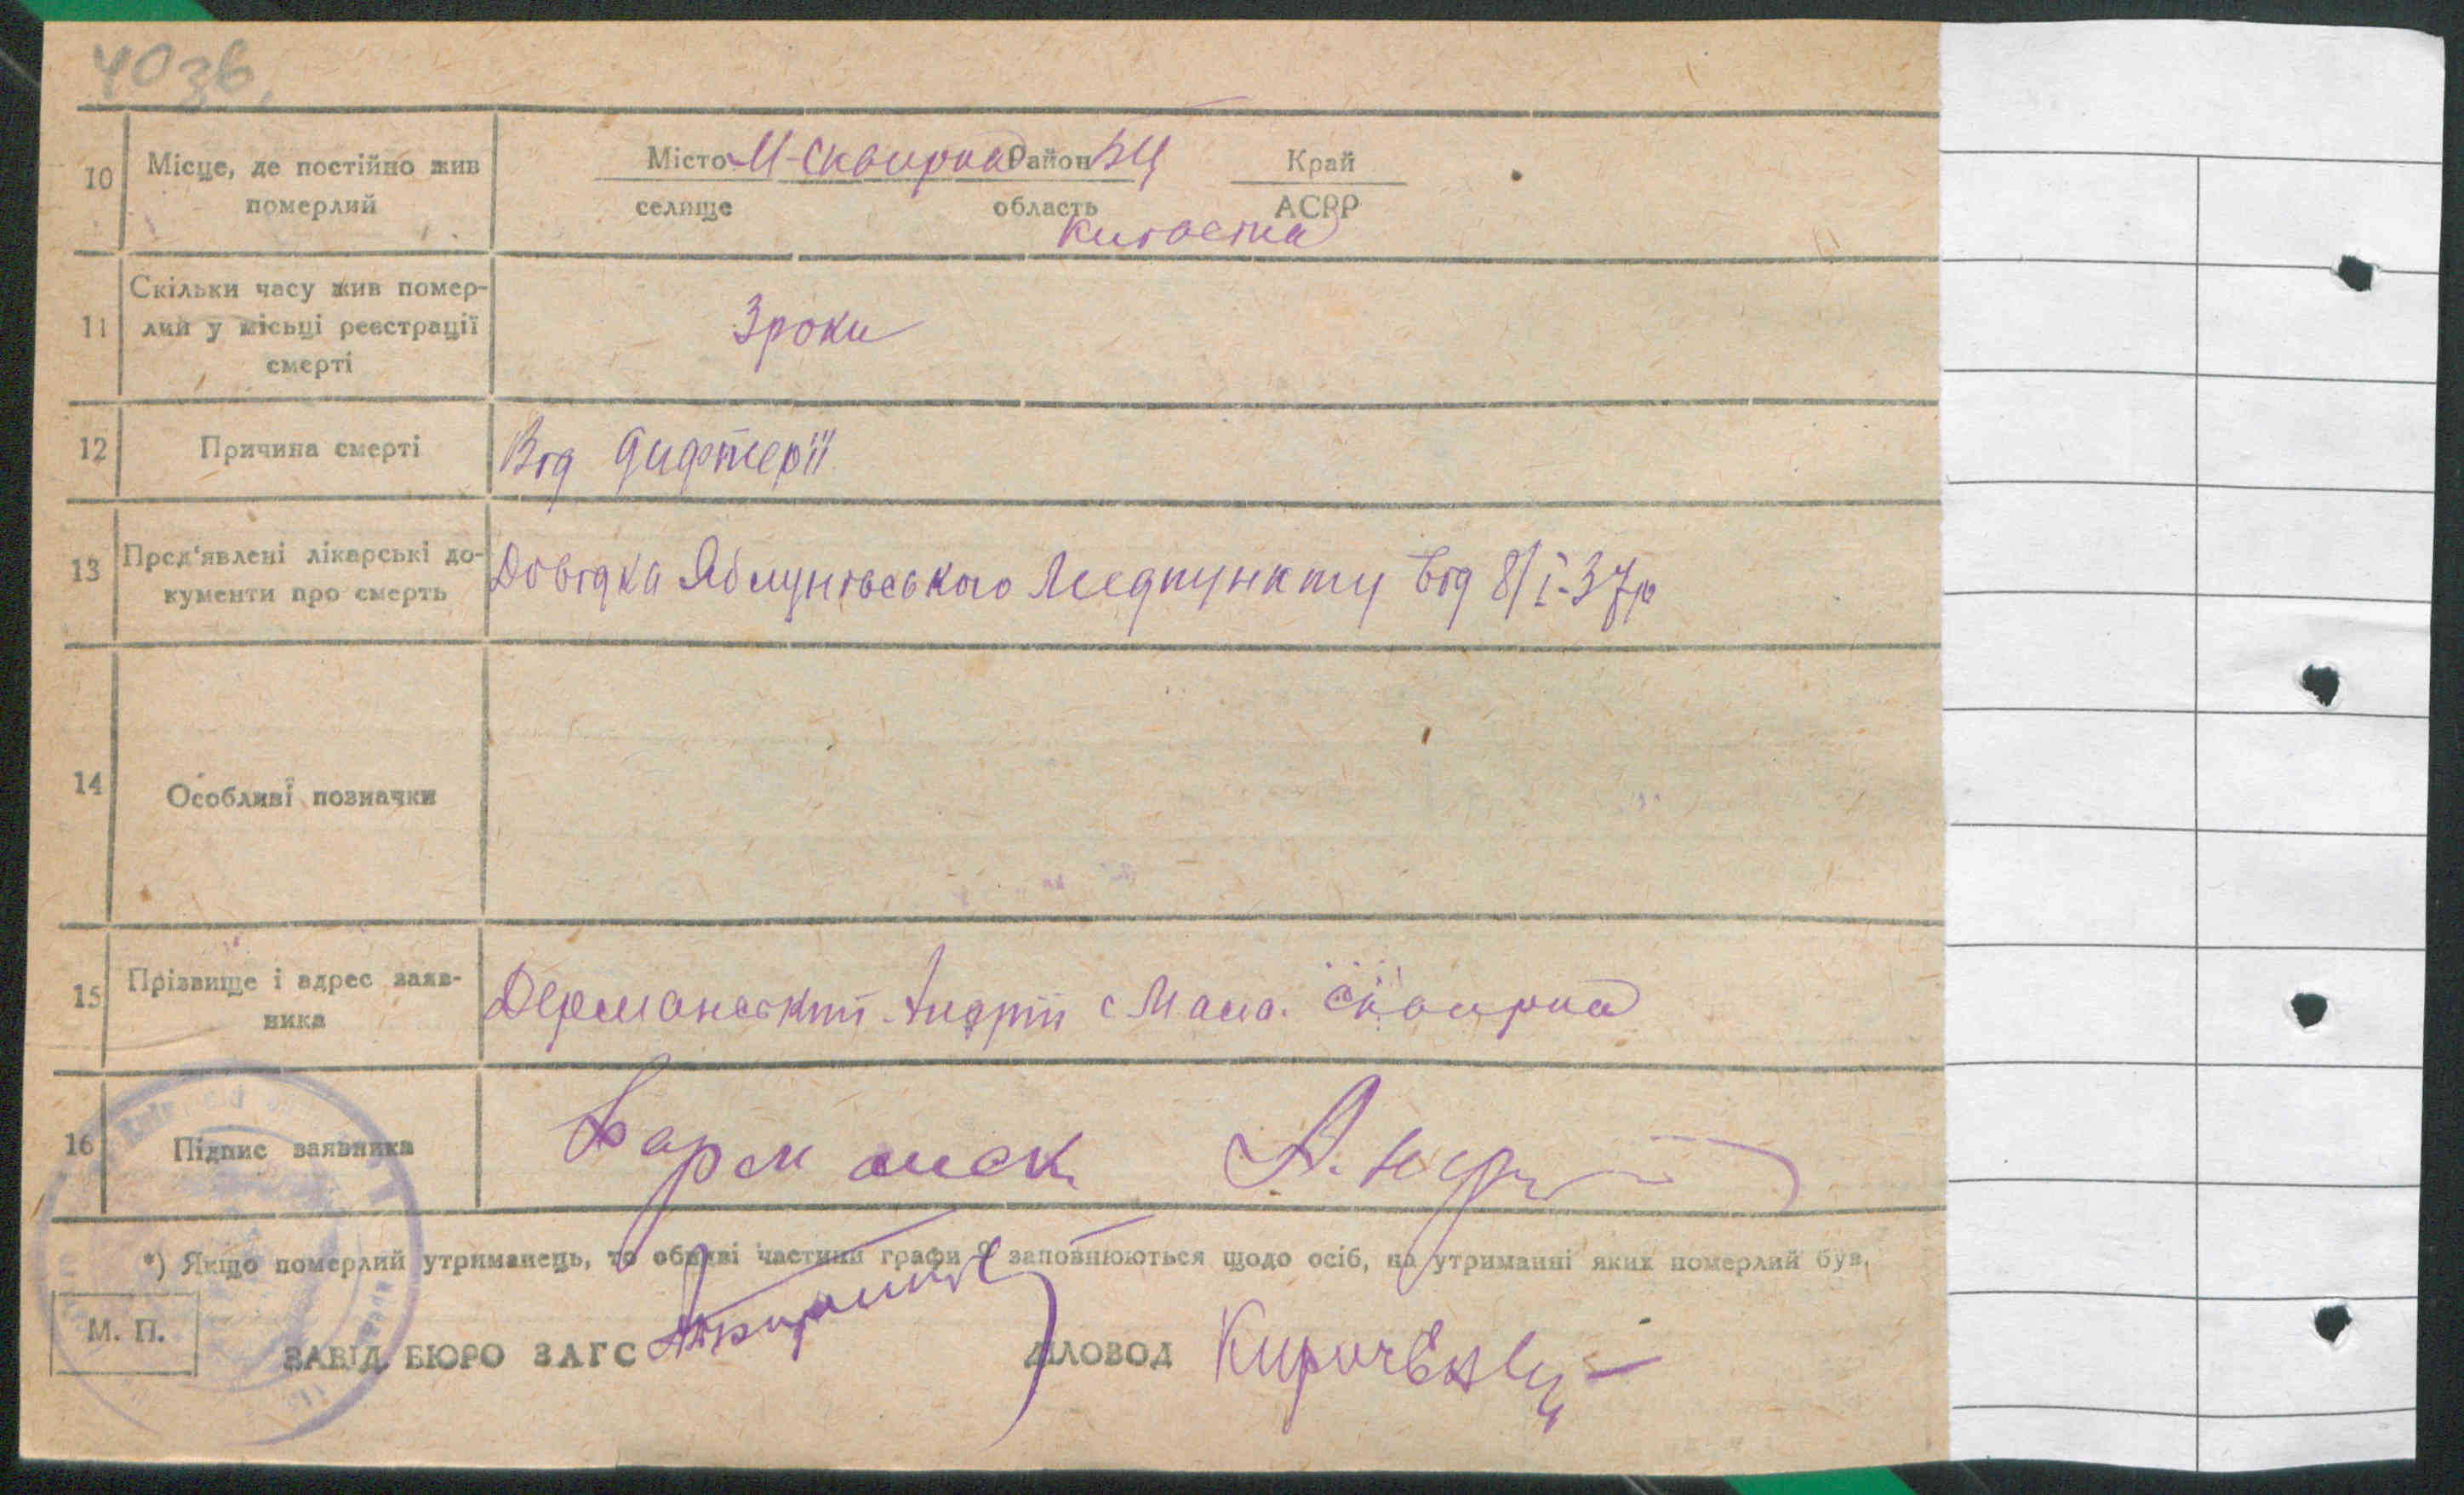 40зв.
10 Місце, де постійно жив Місто М-Сквирка Район БЦ Край
померлий селище область АСРР
Київська
Скільки часу жив помер-
11 лий у місьці реєстрації 3 роки
смерті
12 Причина смерті Від дифтерії
13 Пред'явлені лікарські до- Довідка Яблунівського Медпункту від 8/I-37р
кументи про смерть
14 Особливі позначки
15 Прізвище і адрес заяв- Дерманський Андрій с Мала. Сквирка
ника
16 Підпис заявника
*) Якщо померлий утриманець, то обидві частини графи 9 заповнюються щодо осіб, на утриманні яких померлий був.
М. П.
ЗАВІД. БЮРО ЗАГС ДІЛОВОД